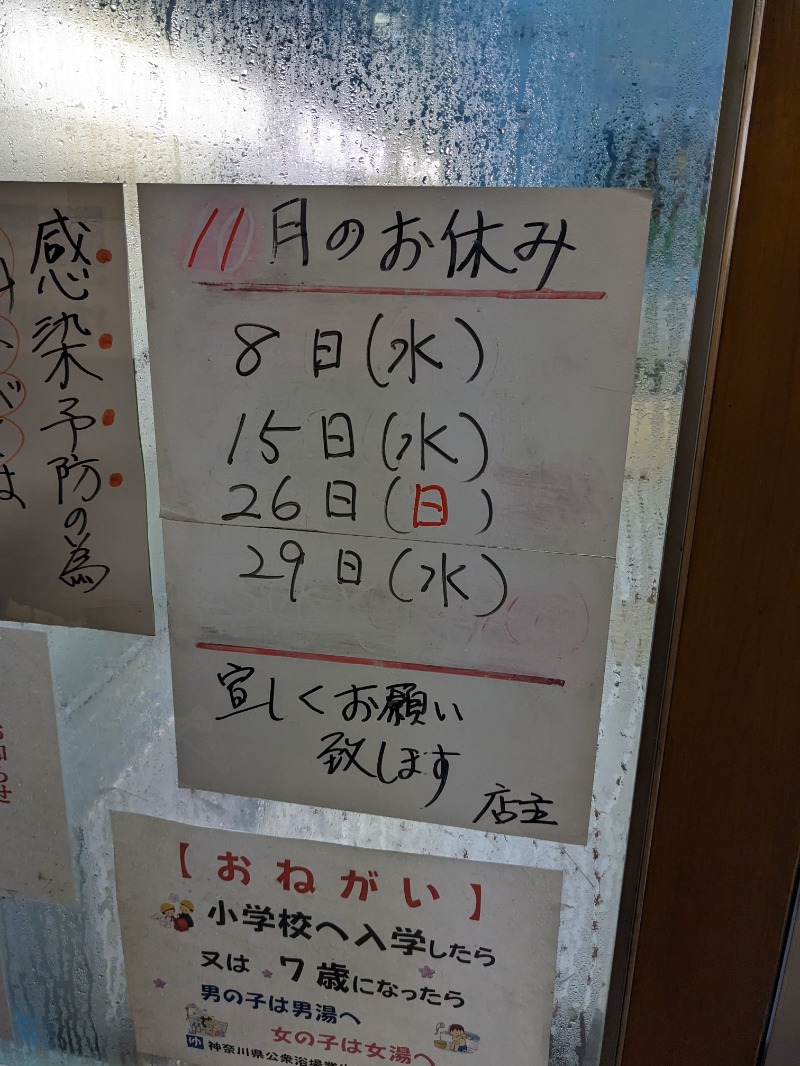 11月のお休み
8日(水)
15日(水)
26日(日)
29日(水)
宜しくお願い
致します
店主
感染予防の為
お知らせ
【おねがい】
小学校へ入学したら
又は 7歳になったら
男の子は男湯へ
女の子は女湯へ
ゆ 神奈川県公衆浴場業